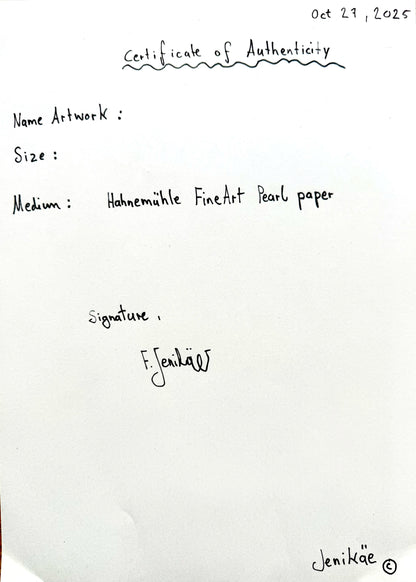 Oct 27, 2025
Certificate of Authenticity
Name Artwork :
Size :
Medium : Hahnemühle FineArt Pearl paper
Signature .
F. Jenikäe
Jenikäe ©